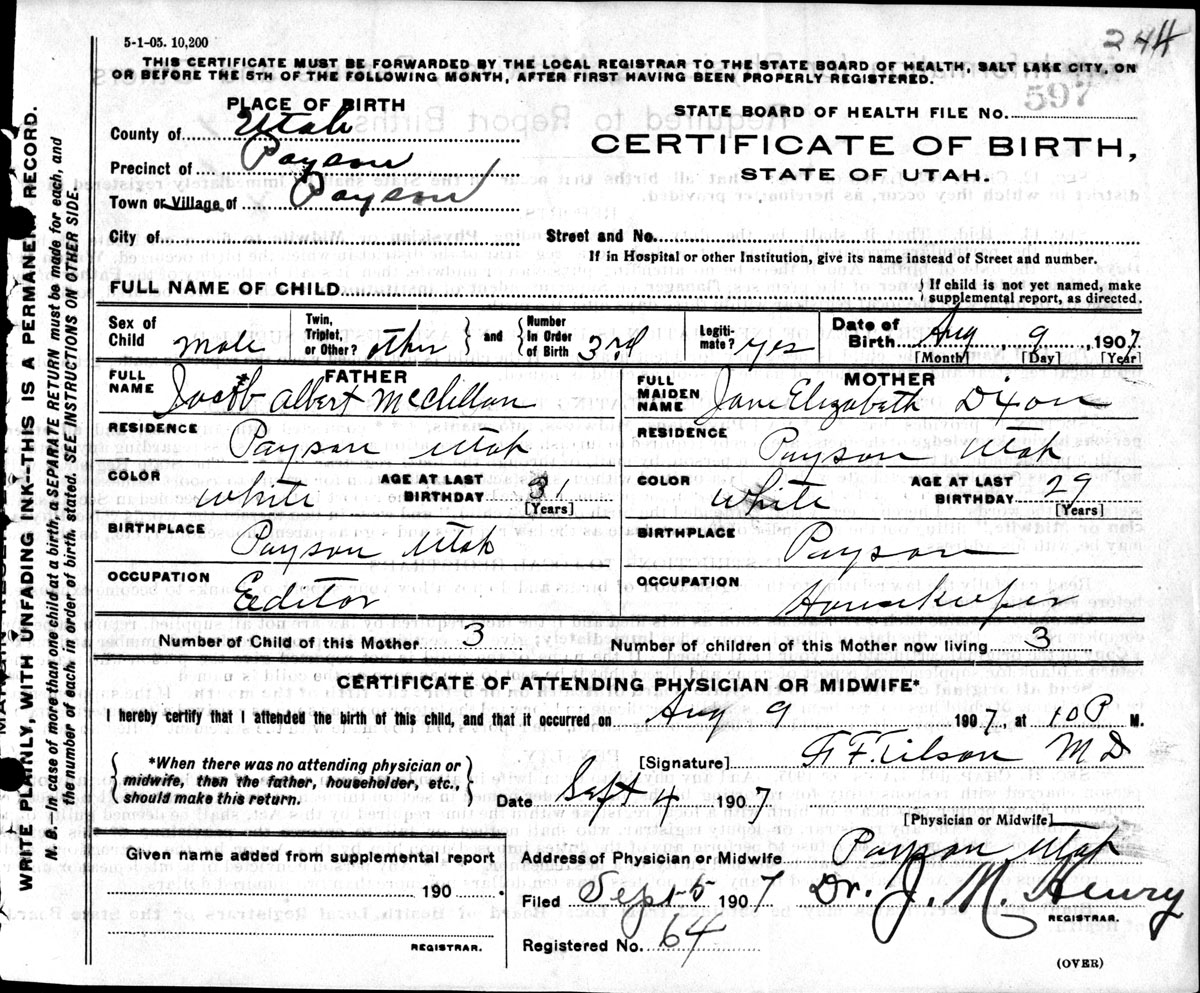 244
5-1-05. 10,200
THIS CERTIFICATE MUST BE FORWARDED BY THE LOCAL REGISTRAR TO THE STATE BOARD OF HEALTH, SALT LAKE CITY, ON
OR BEFORE THE 5TH OF THE FOLLOWING MONTH, AFTER FIRST HAVING BEEN PROPERLY REGISTERED.
PLACE OF BIRTH
STATE BOARD OF HEALTH FILE No. 597
County of Utah
CERTIFICATE OF BIRTH,
Precinct of Payson
STATE OF UTAH.
Town or Village of Payson
City of Street and No.
If in Hospital or other Institution, give its name instead of Street and number.
FULL NAME OF CHILD { If child is not yet named, make
supplemental report, as directed.
Sex of Child male Twin, Triplet, or Other? other and { Number In Order of Birth 3rd Legiti-mate? yes Date of Birth Aug 9 1907
[Month] [Day] [Year]
FATHER
FULL NAME Jacob Albert McClellan
MOTHER
FULL MAIDEN NAME Jane Elizabeth Dixon
RESIDENCE Payson Utah
RESIDENCE Payson Utah
COLOR white AGE AT LAST BIRTHDAY [Years]
COLOR White AGE AT LAST BIRTHDAY 29 [Years]
BIRTHPLACE Payson Utah
BIRTHPLACE Payson
OCCUPATION Editor
OCCUPATION Housekeeper
Number of Child of this Mother 3 Number of children of this Mother now living 3
CERTIFICATE OF ATTENDING PHYSICIAN OR MIDWIFE*
I hereby certify that I attended the birth of this child, and that it occurred on Aug 9 1907, at 10 P M.
{ *When there was no attending physician or
midwife, then the father, householder, etc.,
should make this return. }
[Signature] Tilson M D
Date Sept 4 1907
[Physician or Midwife]
Given name added from supplemental report
190
REGISTRAR.
Address of Physician or Midwife Payson Utah
Filed Sept 5 1907 Dr. J. M. Henry
REGISTRAR.
Registered No. 64
(OVER)
WRITE PLAINLY, WITH UNFADING INK--THIS IS A PERMANENT RECORD.
N. B.--In case of more than one child at a birth, a SEPARATE RETURN must be made for each, and
the number of each, in order of birth, stated. SEE INSTRUCTIONS ON OTHER SIDE.